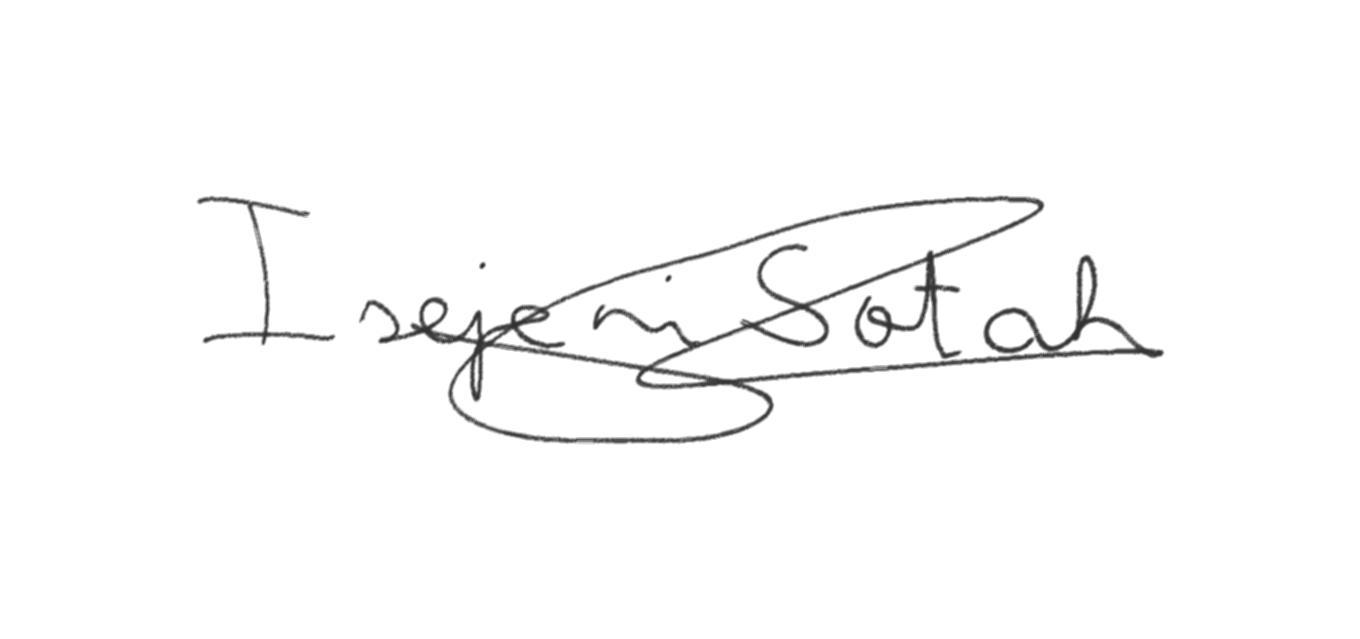 Isejeni Sotah